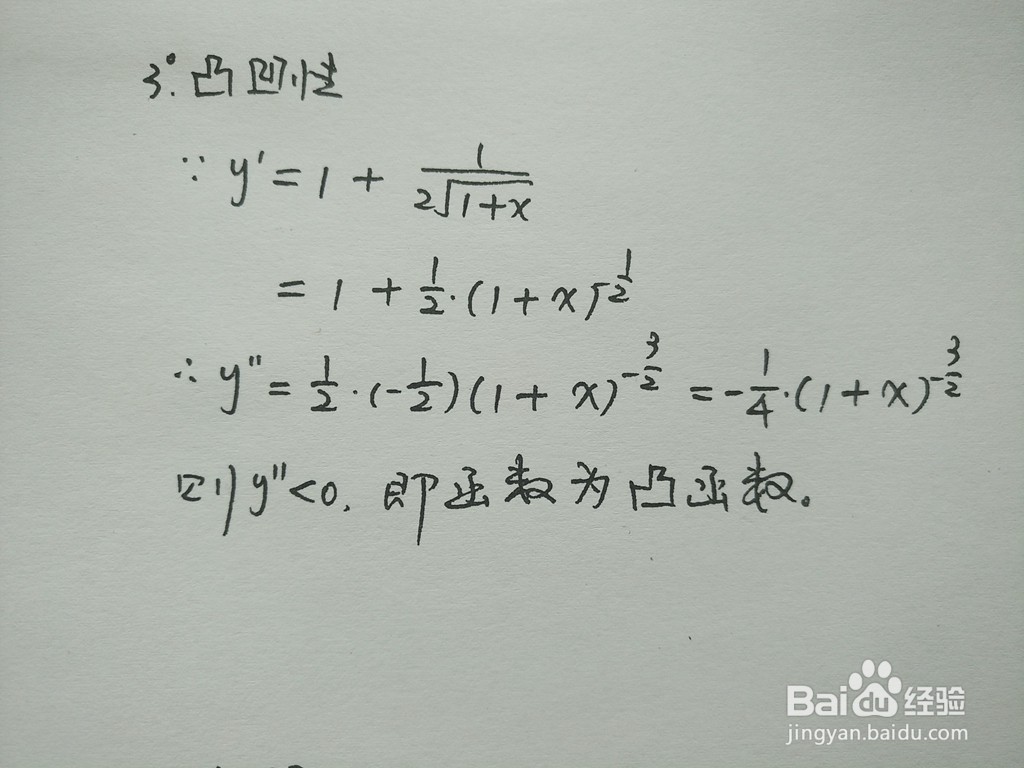 3°. 凸凹性
∵ y' = 1 + 1/(2√(1+x))
= 1 + 1/2·(1+x)^(-1/2)
∴ y" = 1/2·(-1/2)(1+x)^(-3/2) = -1/4·(1+x)^(-3/2)
则y"<0, 即函数为凸函数。
Baidu经验
jingyan.baidu.com